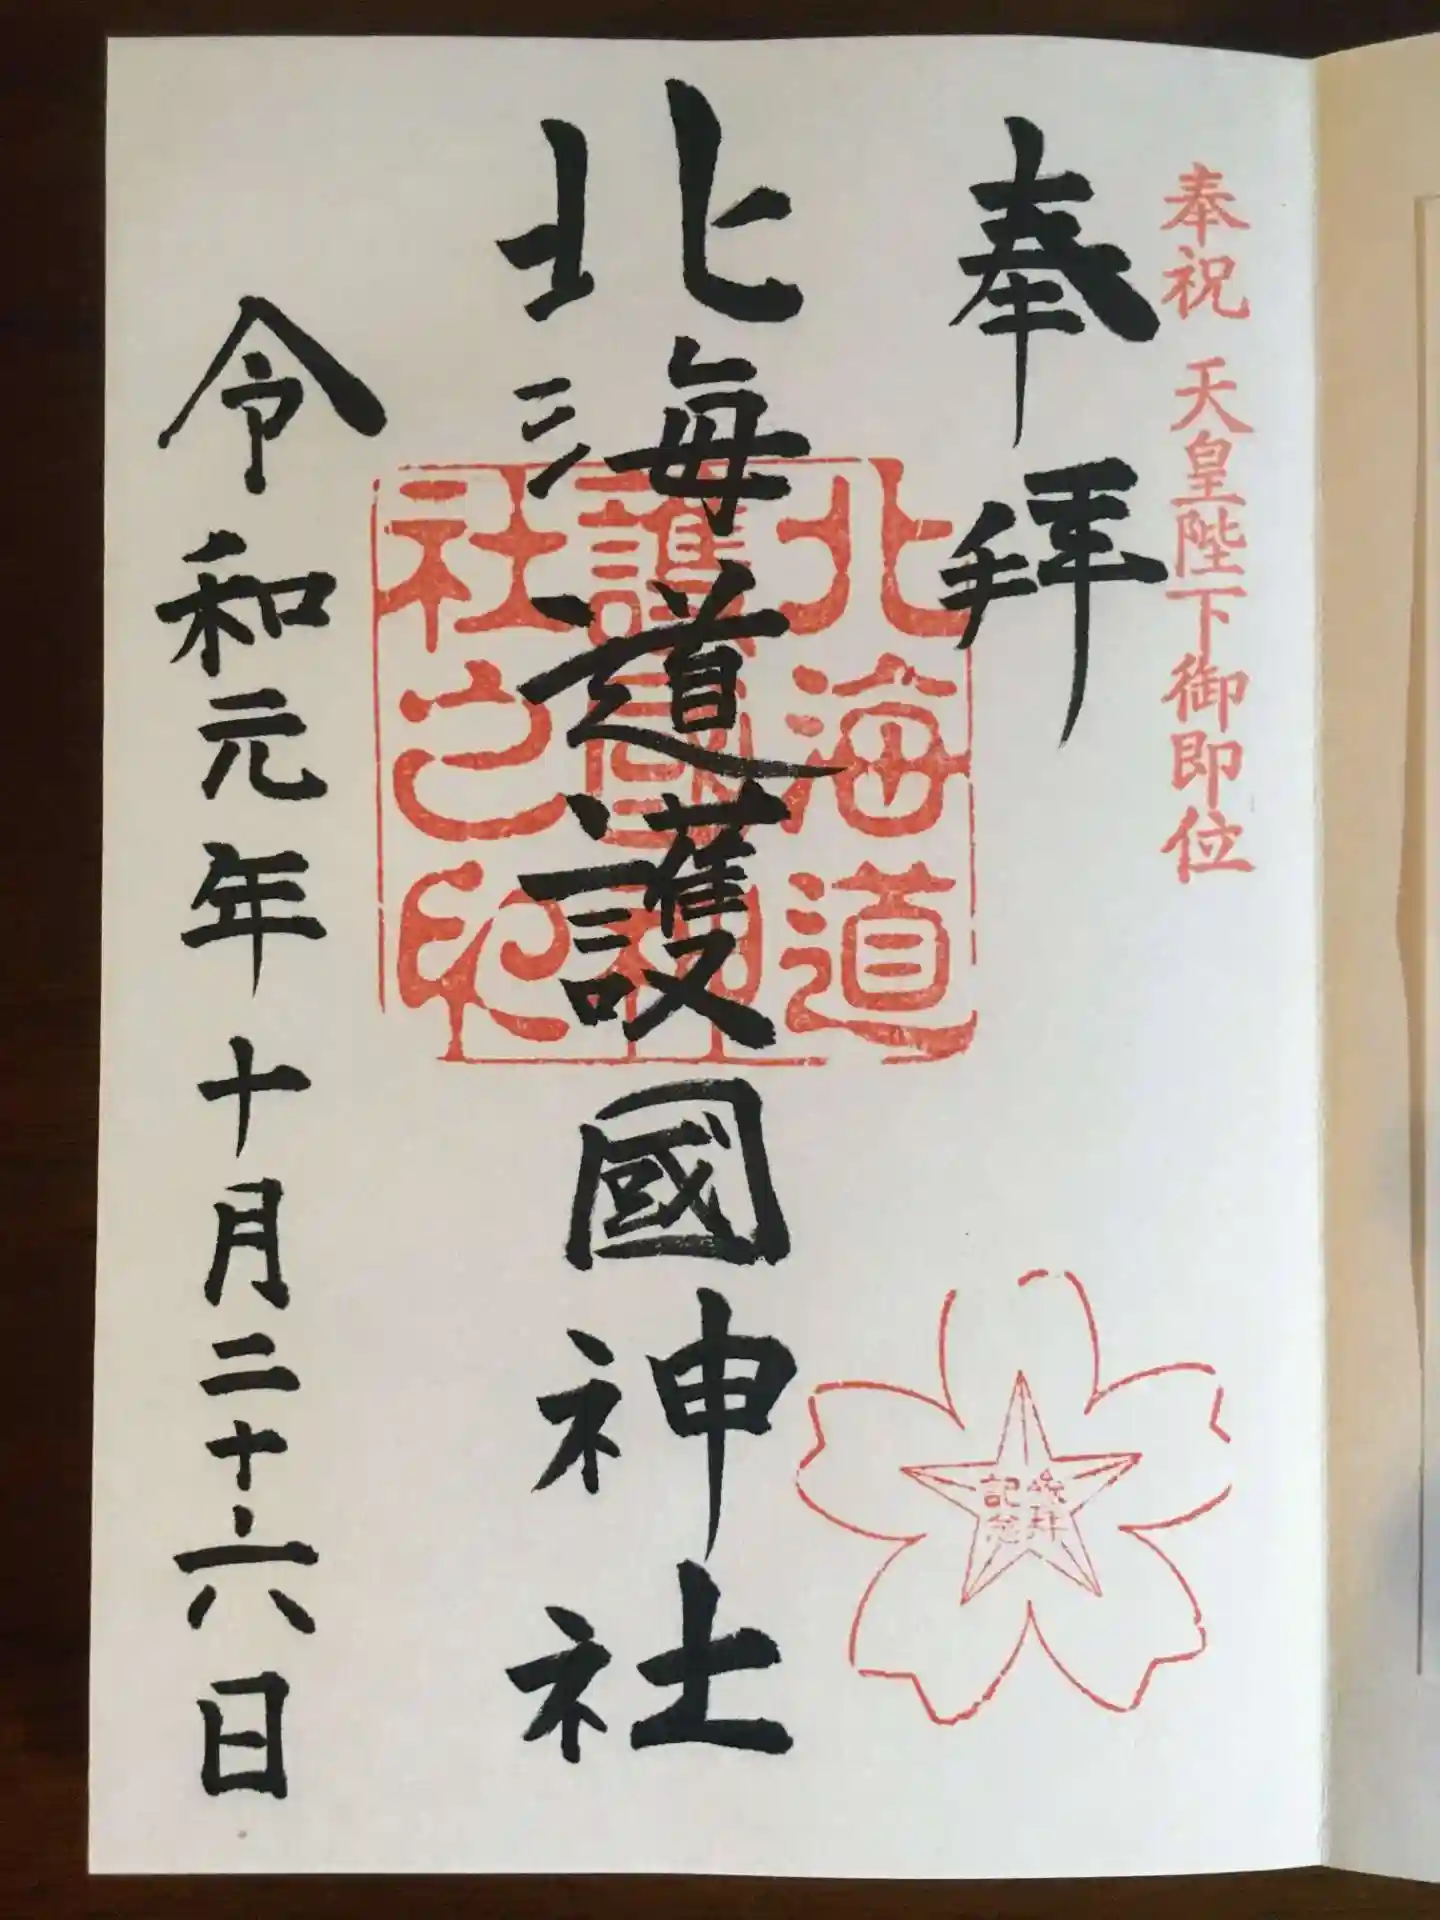 奉祝 天皇陛下御即位
奉拝
北海道護國神社
令和元年十月二十六日
北海道
護國神
社之印
参拝
記念